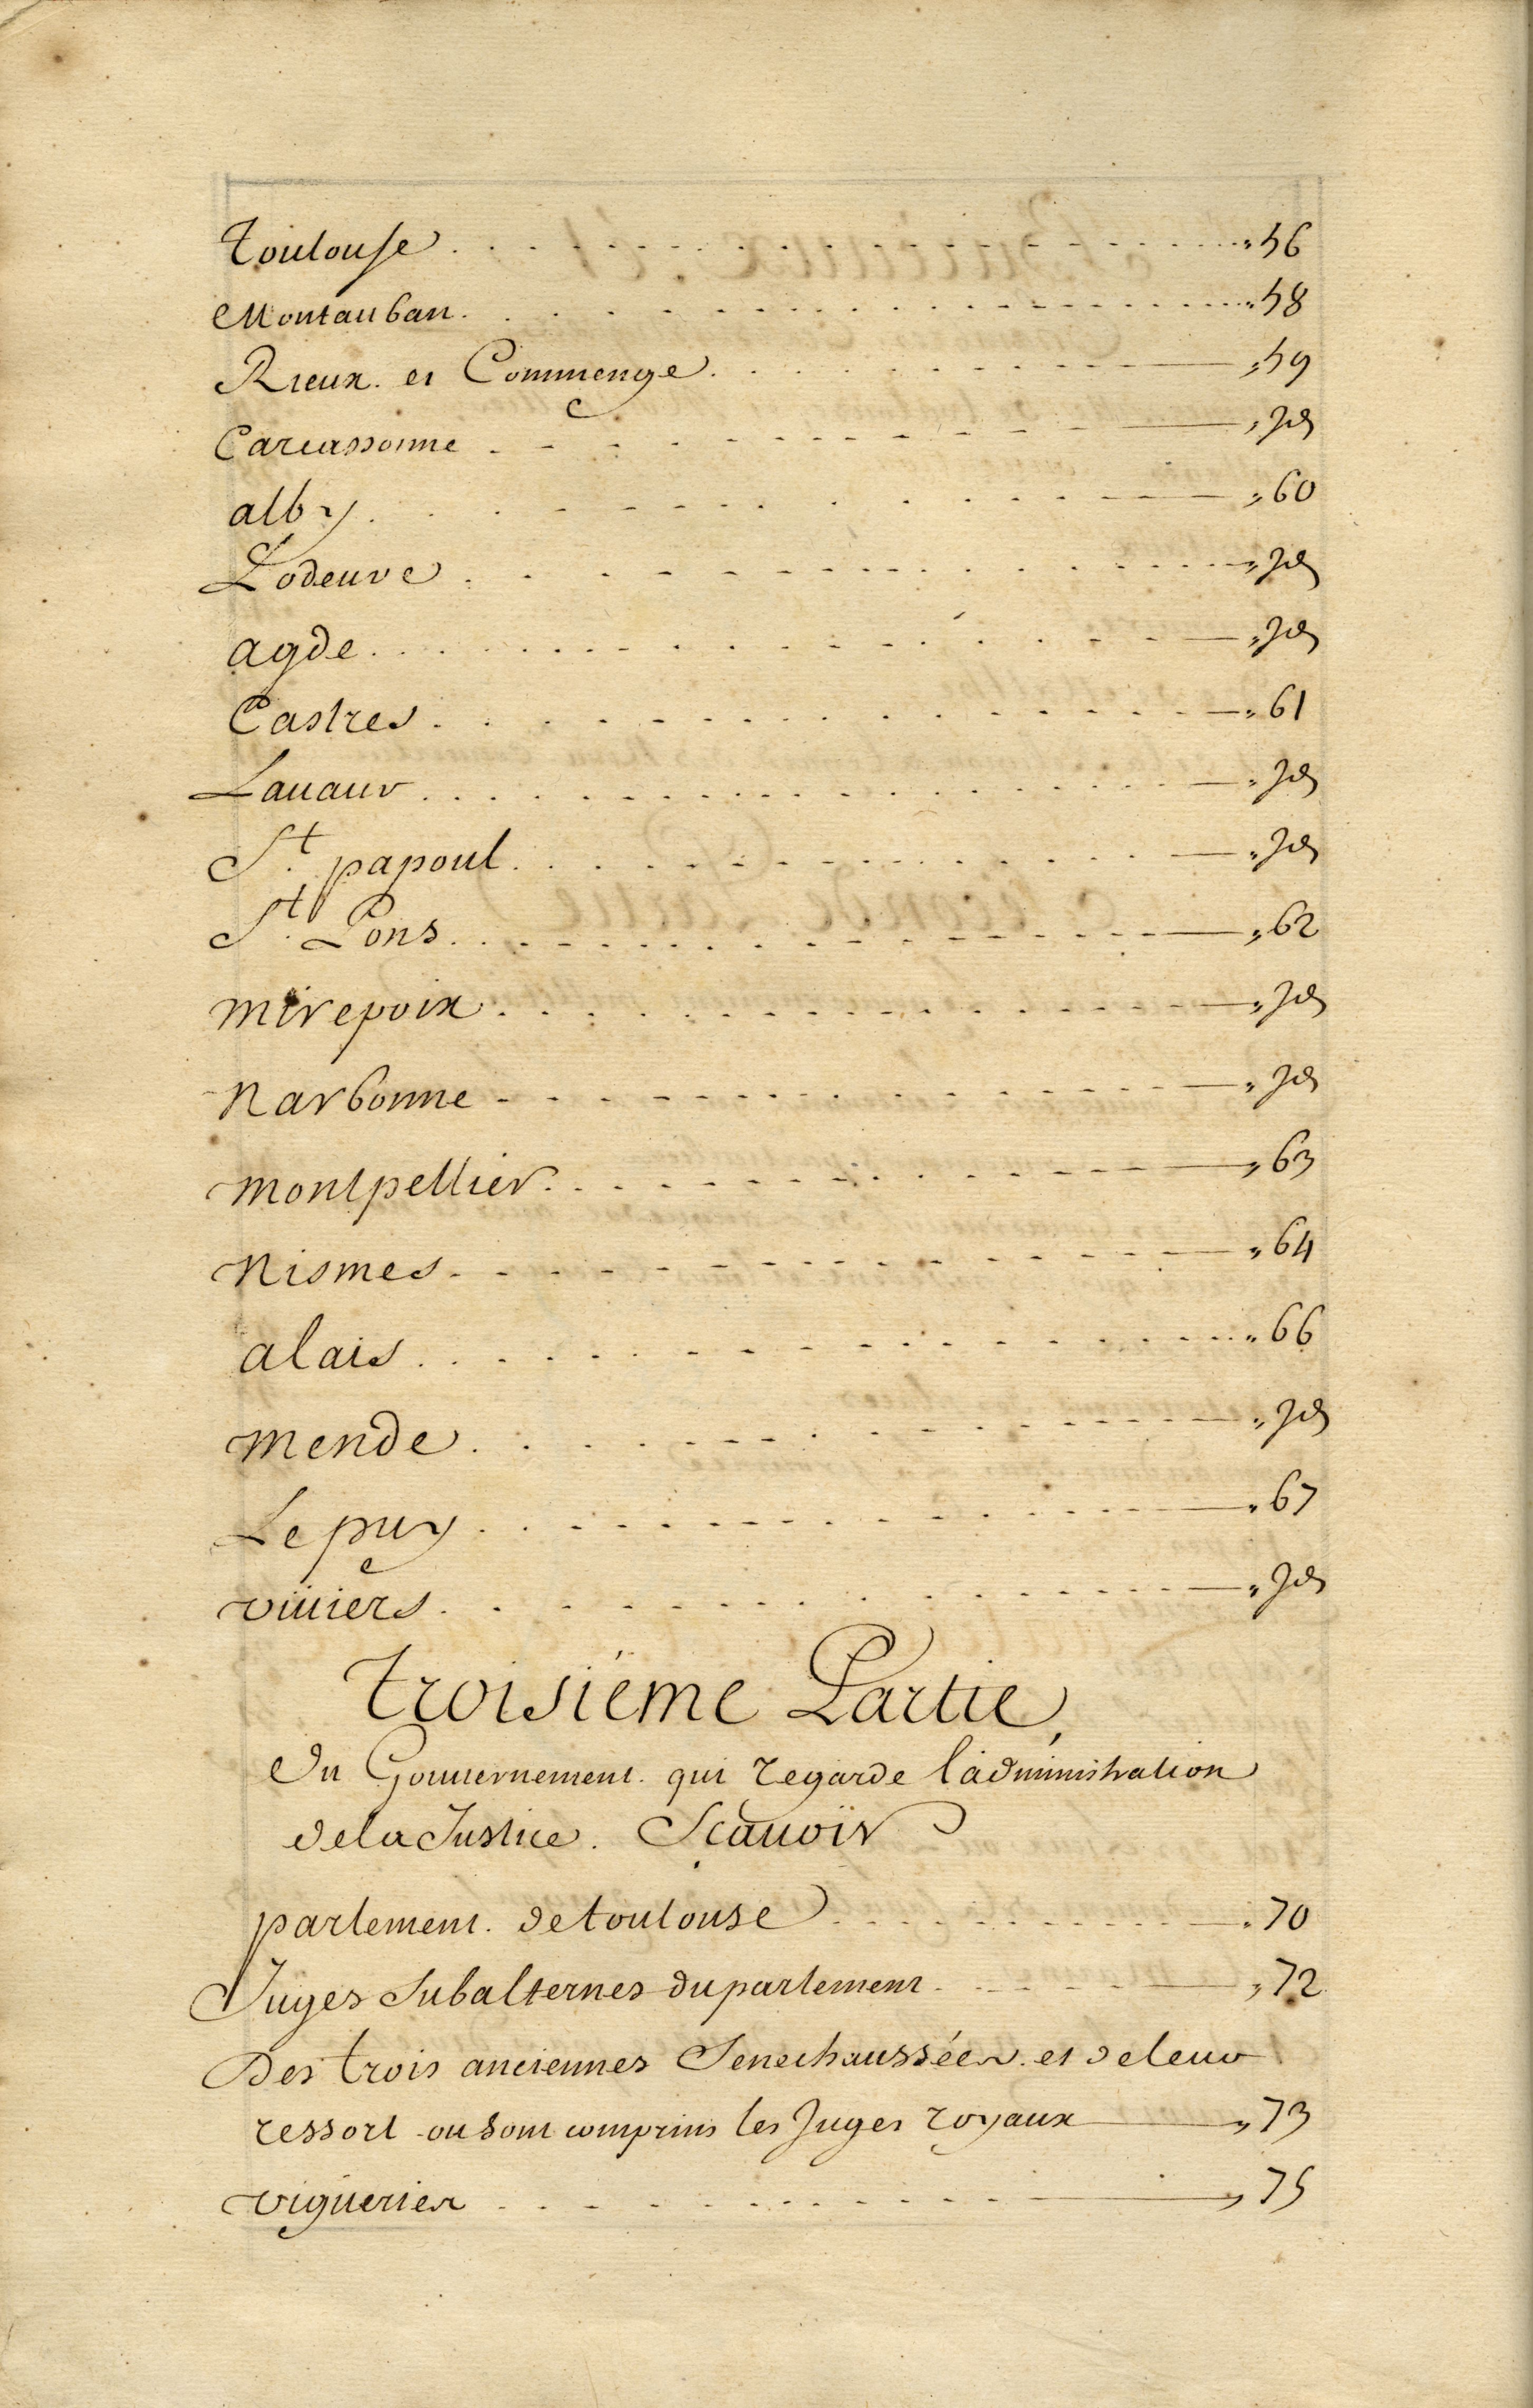 Toulouse . . . . . . . . . . . . . . . . „ 56
Montauban. . . . . . . . . . . . . . . . „ 58
Rieux. et Commenge. . . . . . . . . . . „ 59
Carcassonne . . . . . . . . . . . . . . „ Jd
alby. . . . . . . . . . . . . . . . . . „ 60
Lodeuve . . . . . . . . . . . . . . . . „ Jd
agde. . . . . . . . . . . . . . . . . . „ Jd
Castres . . . . . . . . . . . . . . . . „ 61
Lauaur . . . . . . . . . . . . . . . . . „ Jd
St. papoul . . . . . . . . . . . . . . . „ Jd
St. Pons. . . . . . . . . . . . . . . . „ 62
mirepoix . . . . . . . . . . . . . . . . „ Jd
Narbonne . . . . . . . . . . . . . . . . „ Jd
montpellier. . . . . . . . . . . . . . . „ 63
Nismes . . . . . . . . . . . . . . . . . „ 64
alais . . . . . . . . . . . . . . . . . „ 66
mende . . . . . . . . . . . . . . . . . „ Jd
Le puy . . . . . . . . . . . . . . . . . „ 67
viuiers . . . . . . . . . . . . . . . . „ Jd
Troisiéme Partie,
Du Gouuernement. qui regarde l'administration
de la Justice. Sçauoir
parlement. de toulouse . . . . . . . . . „ 70
Juges Subalternes du parlement . . . . . „ 72
Des trois anciennes Senechaussées. et de leur
ressort ou sont comprins les Juges royaux „ 73
vigueries . . . . . . . . . . . . . . . „ 75